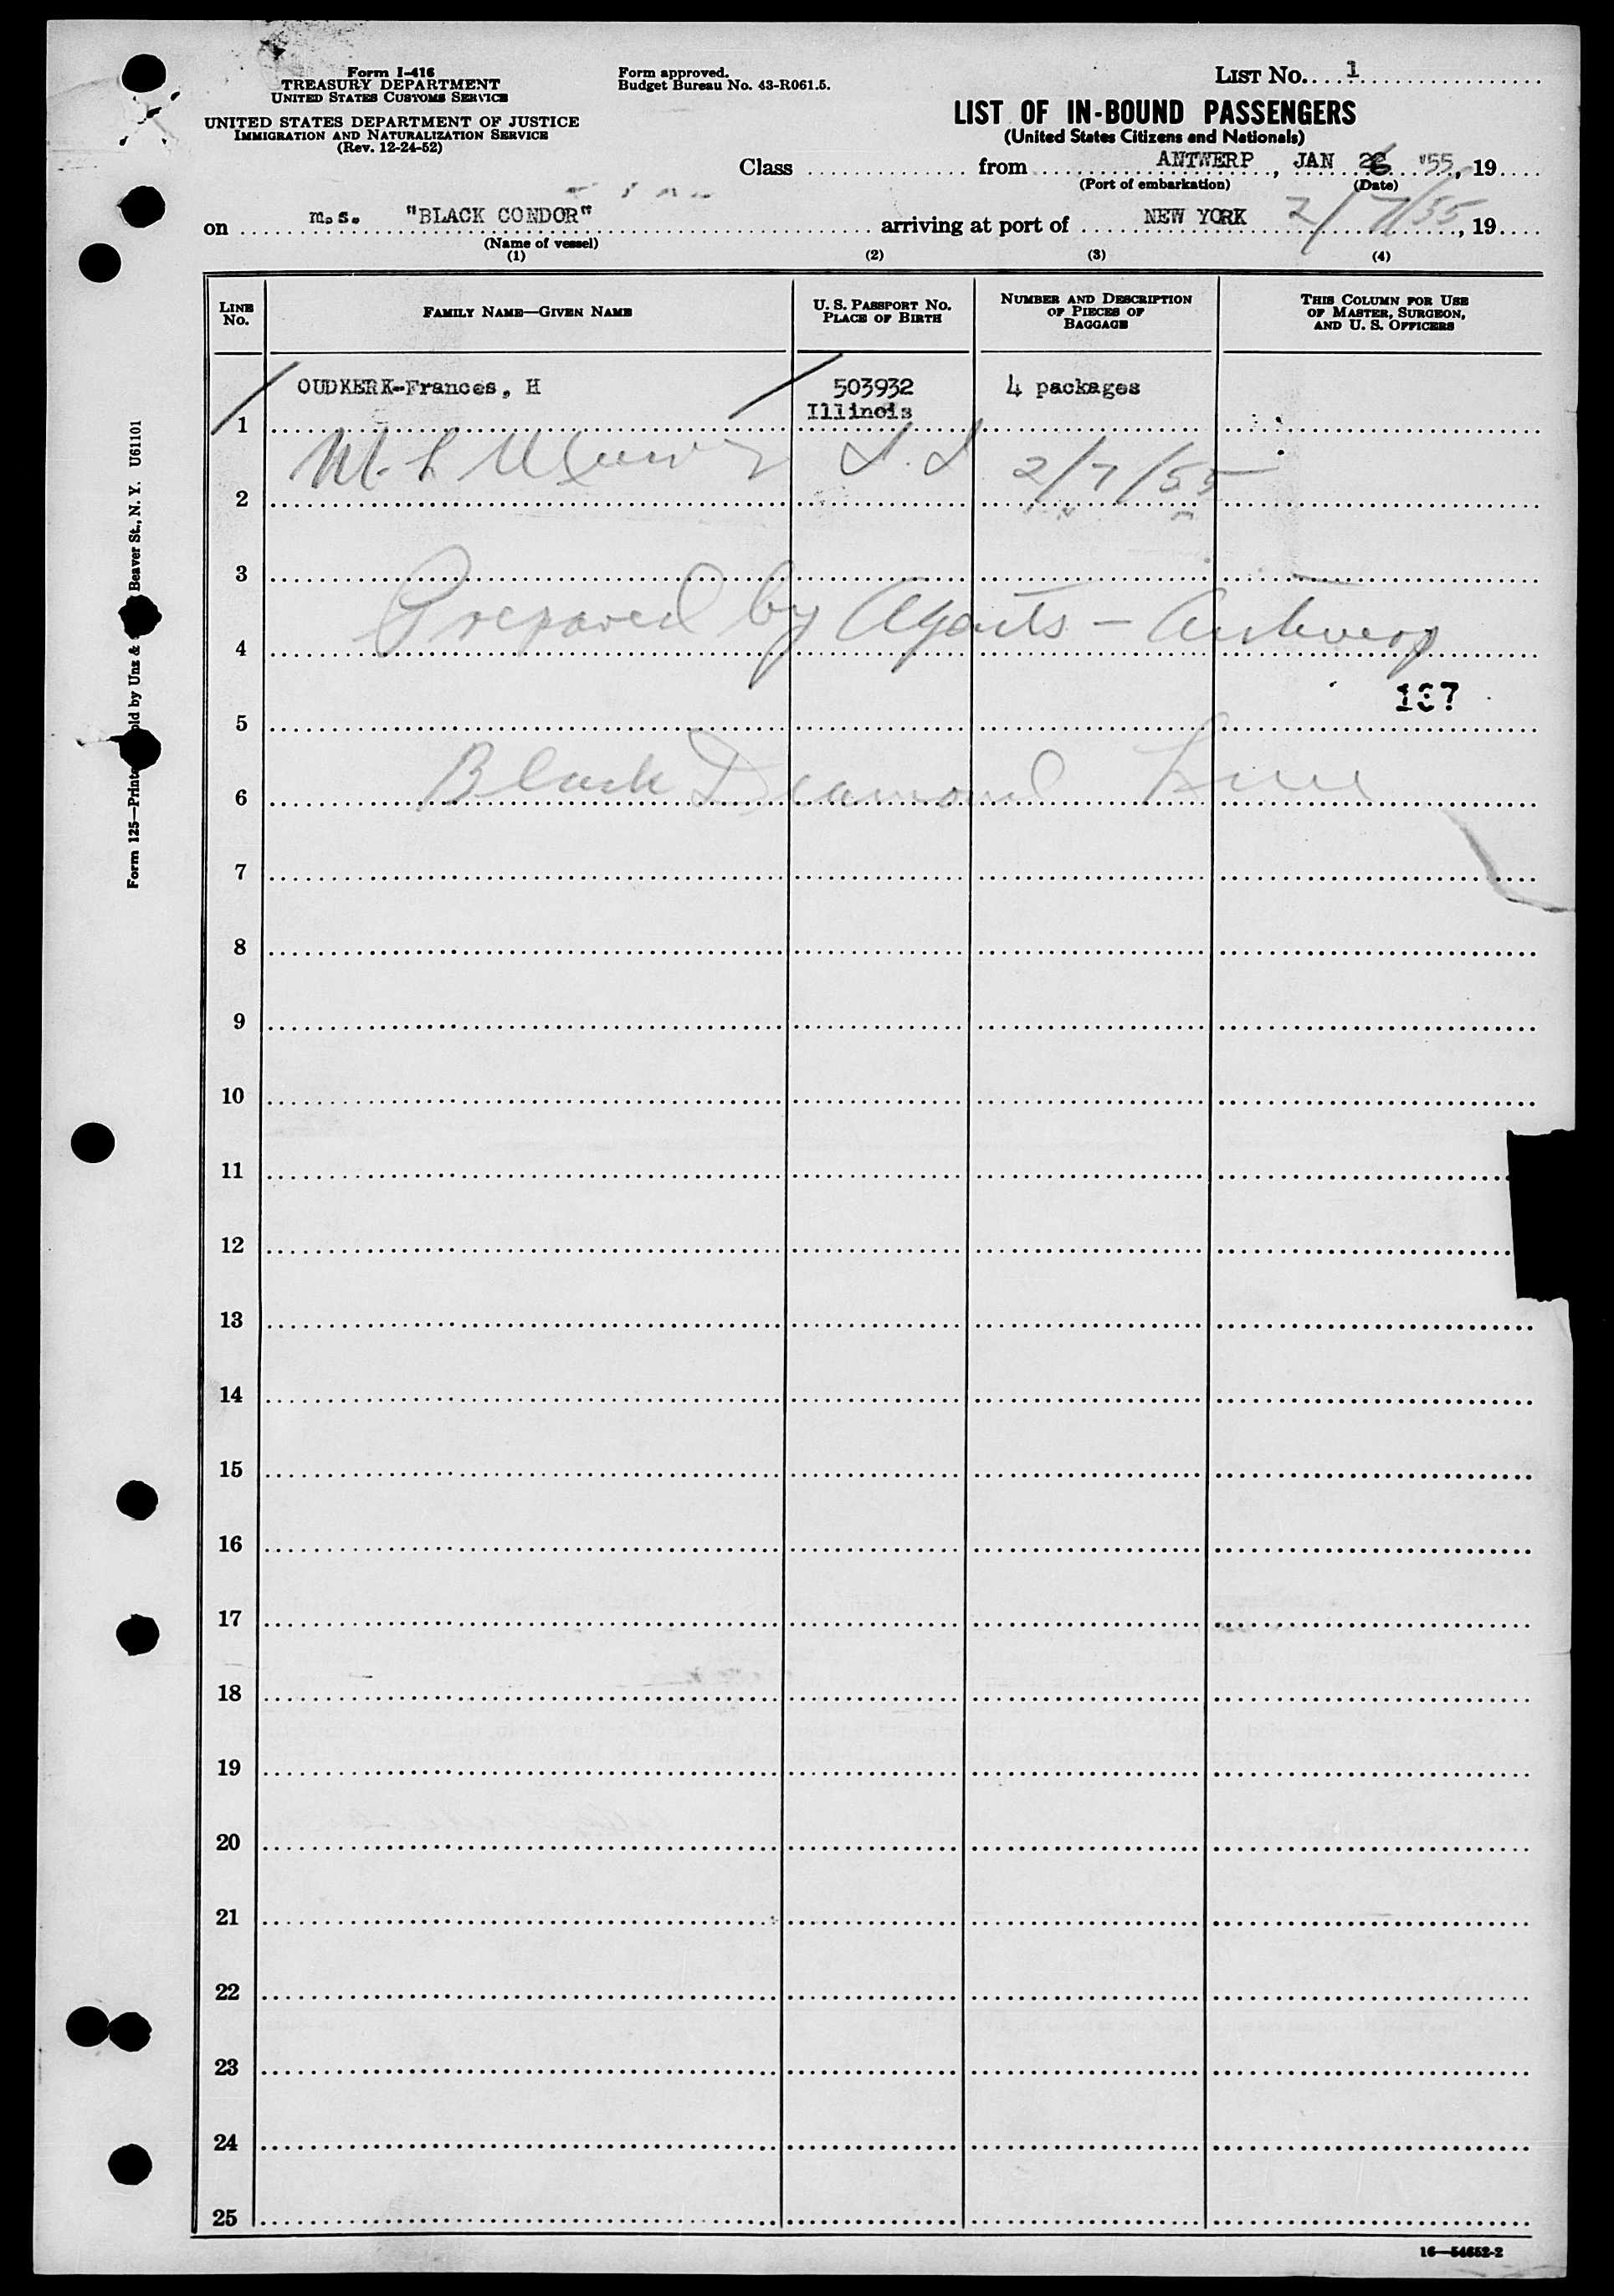 Form I-416
TREASURY DEPARTMENT
UNITED STATES CUSTOMS SERVICE
UNITED STATES DEPARTMENT OF JUSTICE
IMMIGRATION AND NATURALIZATION SERVICE
(Rev. 12-24-52)
Form approved.
Budget Bureau No. 43-R061.5.
LIST No. 1
LIST OF IN-BOUND PASSENGERS
(United States Citizens and Nationals)
Class from ANTWERP, JAN 26 '55, 19
(Port of embarkation) (Date)
on m.s. "BLACK CONDOR" arriving at port of NEW YORK 2/7/55, 19
(Name of vessel)
(1) (2) (3) (4)
LINE No.
FAMILY NAME—GIVEN NAME
U. S. PASSPORT No. PLACE OF BIRTH
NUMBER AND DESCRIPTION OF PIECES OF BAGGAGE
THIS COLUMN FOR USE OF MASTER, SURGEON, AND U. S. OFFICERS
OUDKERK-Frances, H 503932 4 packages
1 Illinois
M. L 2/7/55
2
3
Prepared by Agents - Antwerp
4
137
5
Black Diamond Line
6
7
8
9
10
11
12
13
14
15
16
17
18
19
20
21
22
23
24
25
16—54652-2
Form 125—Printed sold by Unz & Beaver St., N. Y. U61101